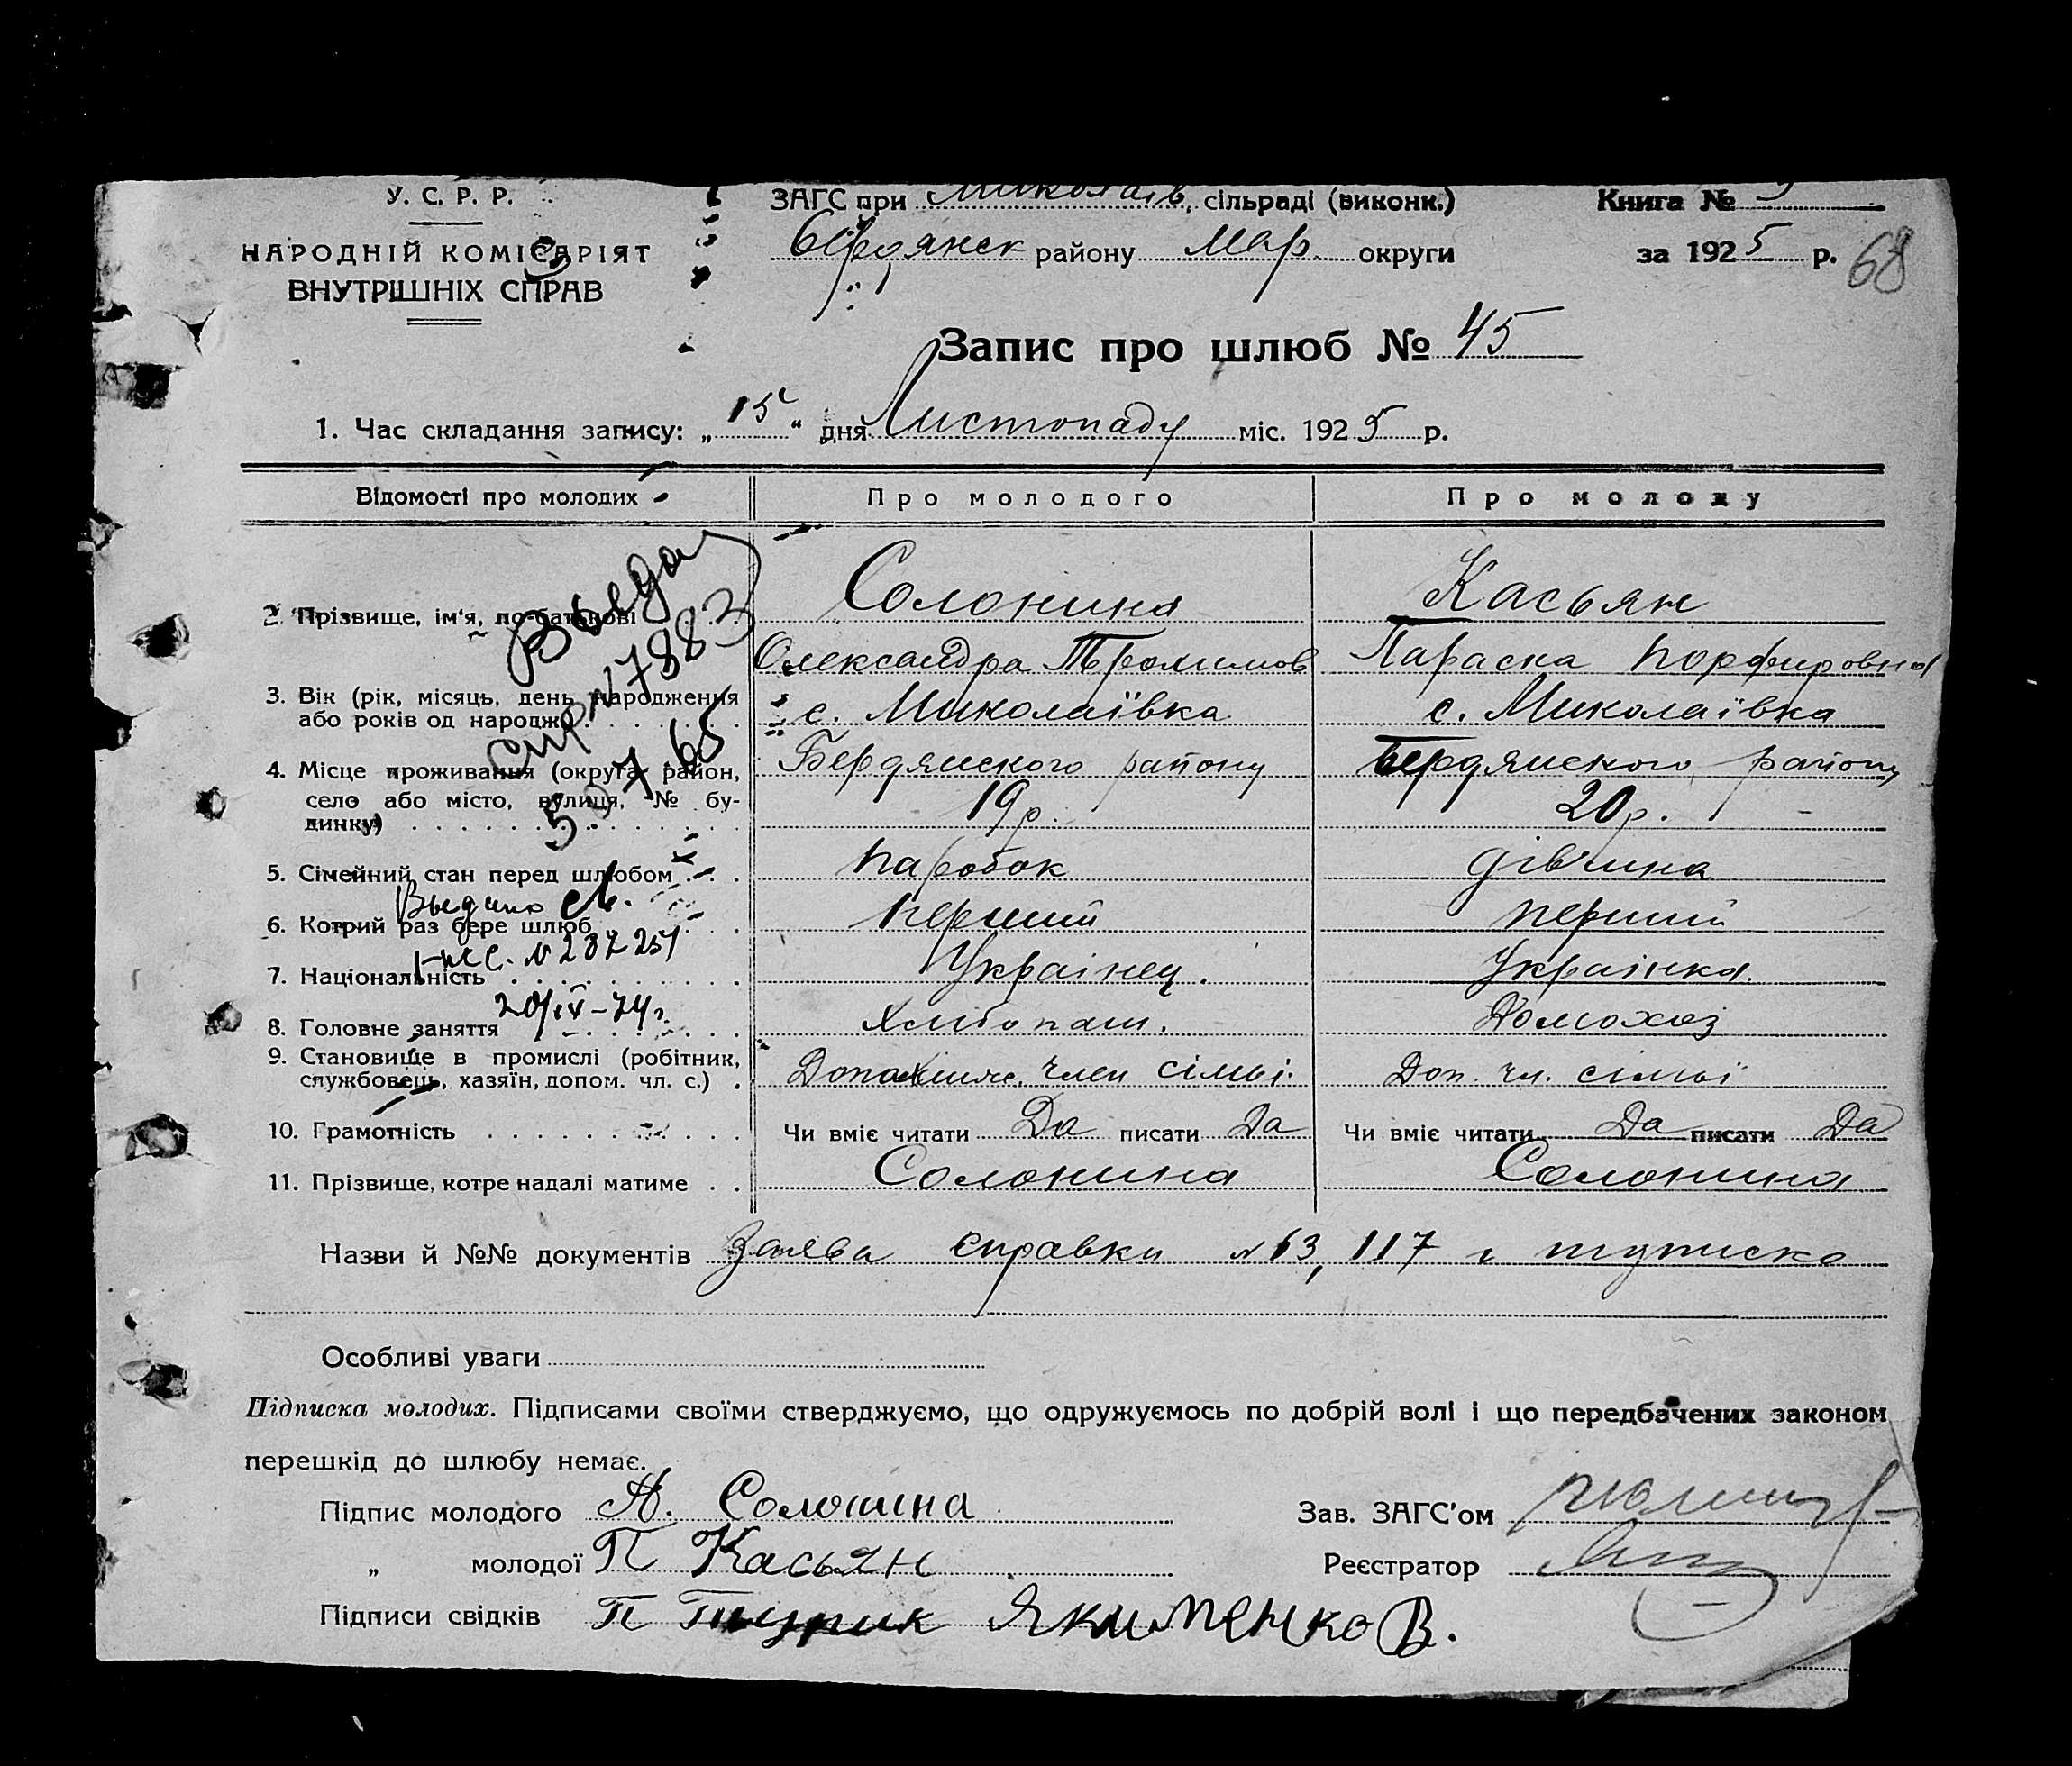 У. С. Р. Р.
НАРОДНІЙ КОМІСАРІЯТ
ВНУТРІШНІХ СПРАВ
ЗАГС при Миколаїв. сільраді (виконк.)
Бердянск району Мар. округи
Книга №
за 1925 р.
68
Запис про шлюб № 45
1. Час складання запису: „15“ дня Листопаду міс. 1925 р.
Відомості про молодих
Про молодого
Про молоду
2. Прізвище, ім'я, по-батькові
Солонина
Касьян
Олександра Трохимов
Параска Порфировна
3. Вік (рік, місяць, день народження
або років од народж.)
с. Миколаївка
с. Миколаївка
4. Місце проживання (округа, район,
село або місто, вулиця, № бу-
динку)
Бердянского району
Бердянского району
19 р.
20 р.
5. Сімейний стан перед шлюбом
паробок
дівчина
6. Котрий раз бере шлюб
перший
перший
7. Національність
Українец.
Українка.
8. Головне заняття
Хлібопаш.
Домохоз
9. Становище в промислі (робітник,
службовець, хазяїн, допом. чл. с.)
член сімьі.
Доп. чл. сімьї
10. Грамотність
Чи вміє читати Да писати Да
Чи вміє читати Да писати Да
11. Прізвище, котре надалі матиме
Солонина
Солонина
№ 7883
5 07 65
№ 287251
20/IV-74 г.
Назви й №№ документів Заява справки № 63, 117
Особливі уваги
Підписка молодих. Підписами своїми стверджуємо, що одружуємось по добрій волі і що передбачених законом
перешкід до шлюбу немає.
Підпис молодого А. Солонина
Зав. ЗАГС'ом
„ молодої П Касьян
Реєстратор
Підписи свідків П Якименко В.